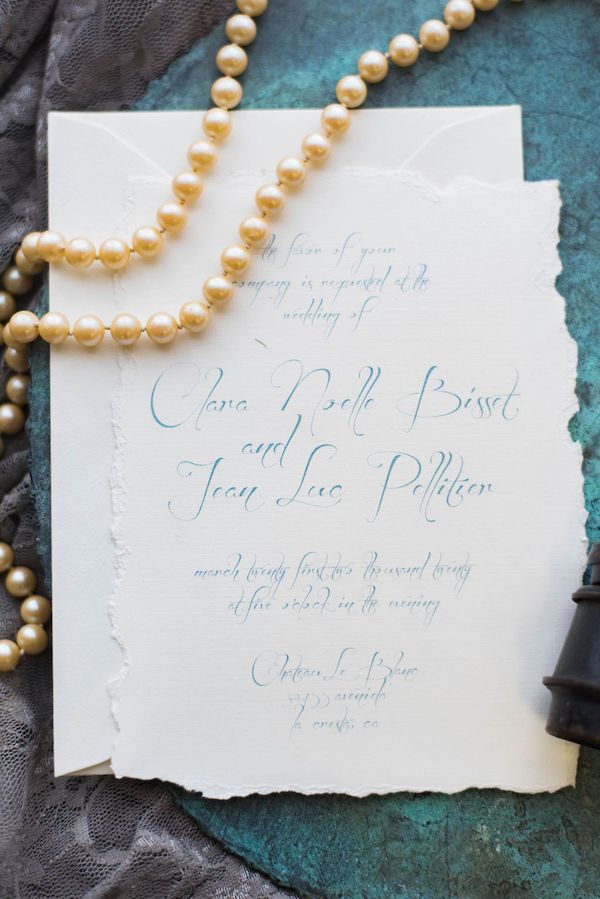 the favor of your
company is requested at the
wedding of
Clara Noelle Bisset
and
Jean Luc Pellitier
march twenty first two thousand twenty
at five o'clock in the evening
Chateau Le Blanc
avenida
la cresta, ca